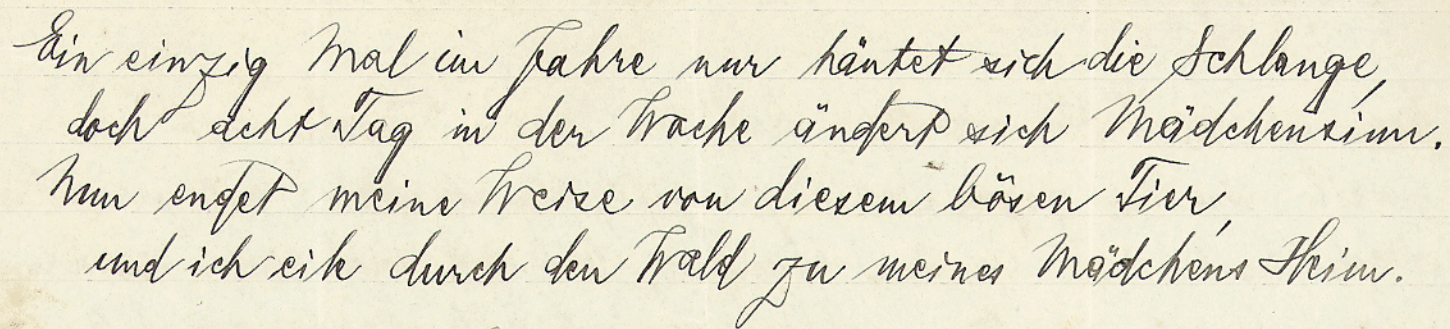 Ein einzig Mal im Jahre nur häutet sich die Schlange,
doch acht Tag in der Woche ändert sich Mädchensinn.
Nun endet meine Weise von diesem bösen Tier,
und ich eile durch den Wald zu meines Mädchens Heim.